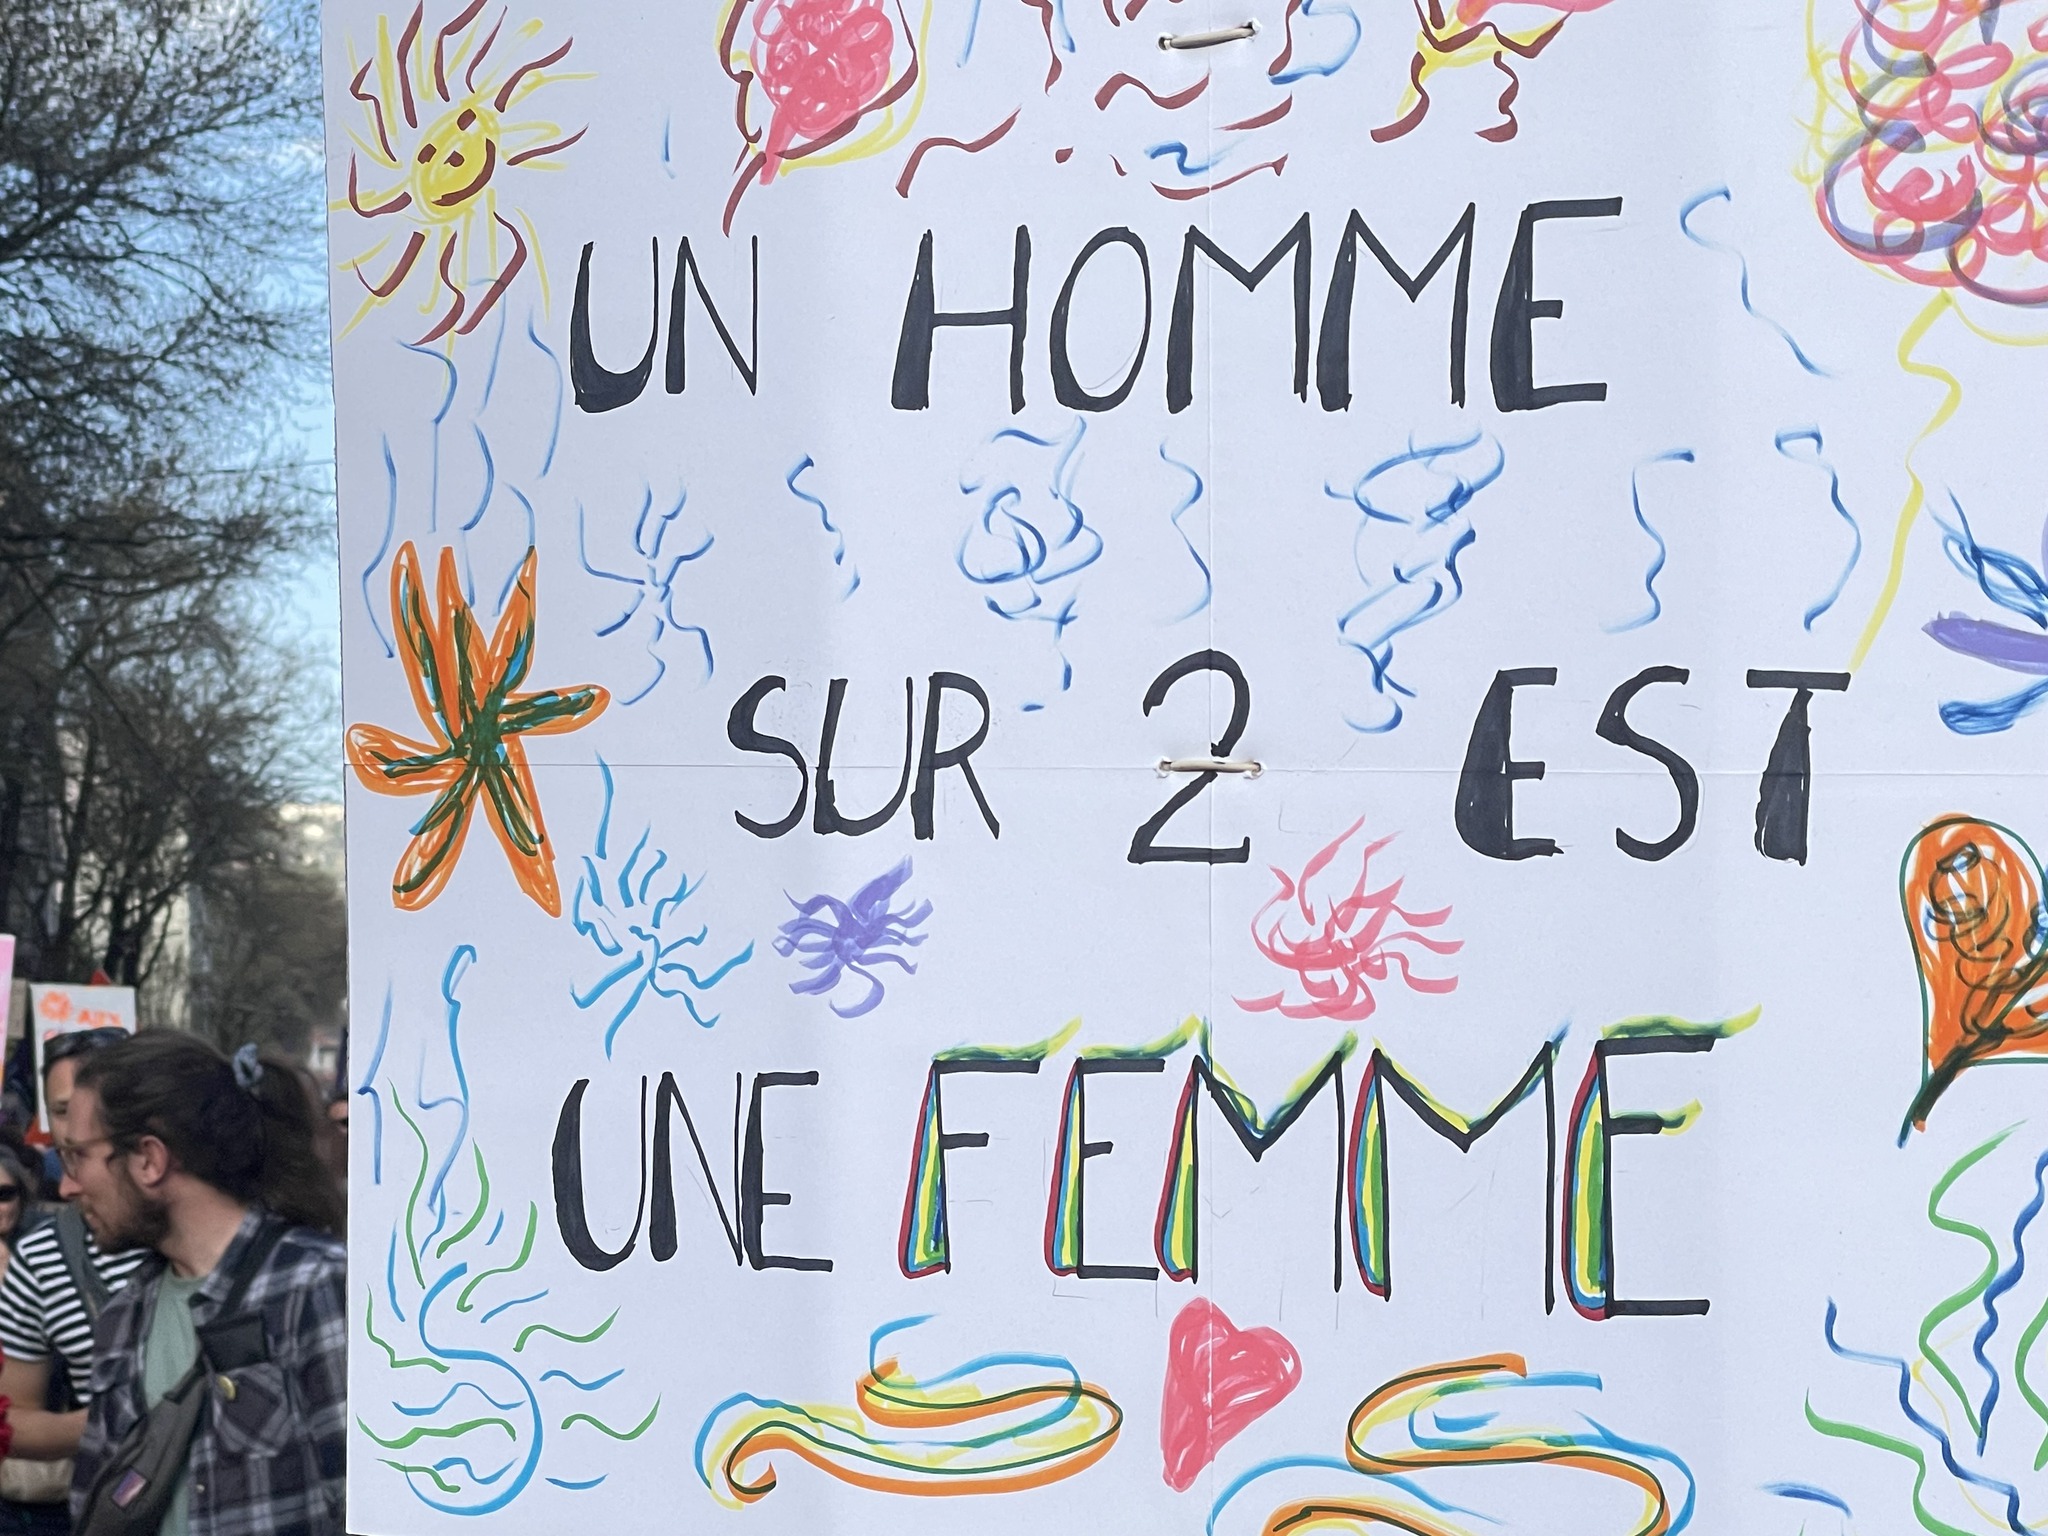 UN HOMME
SUR 2 EST
UNE FEMME